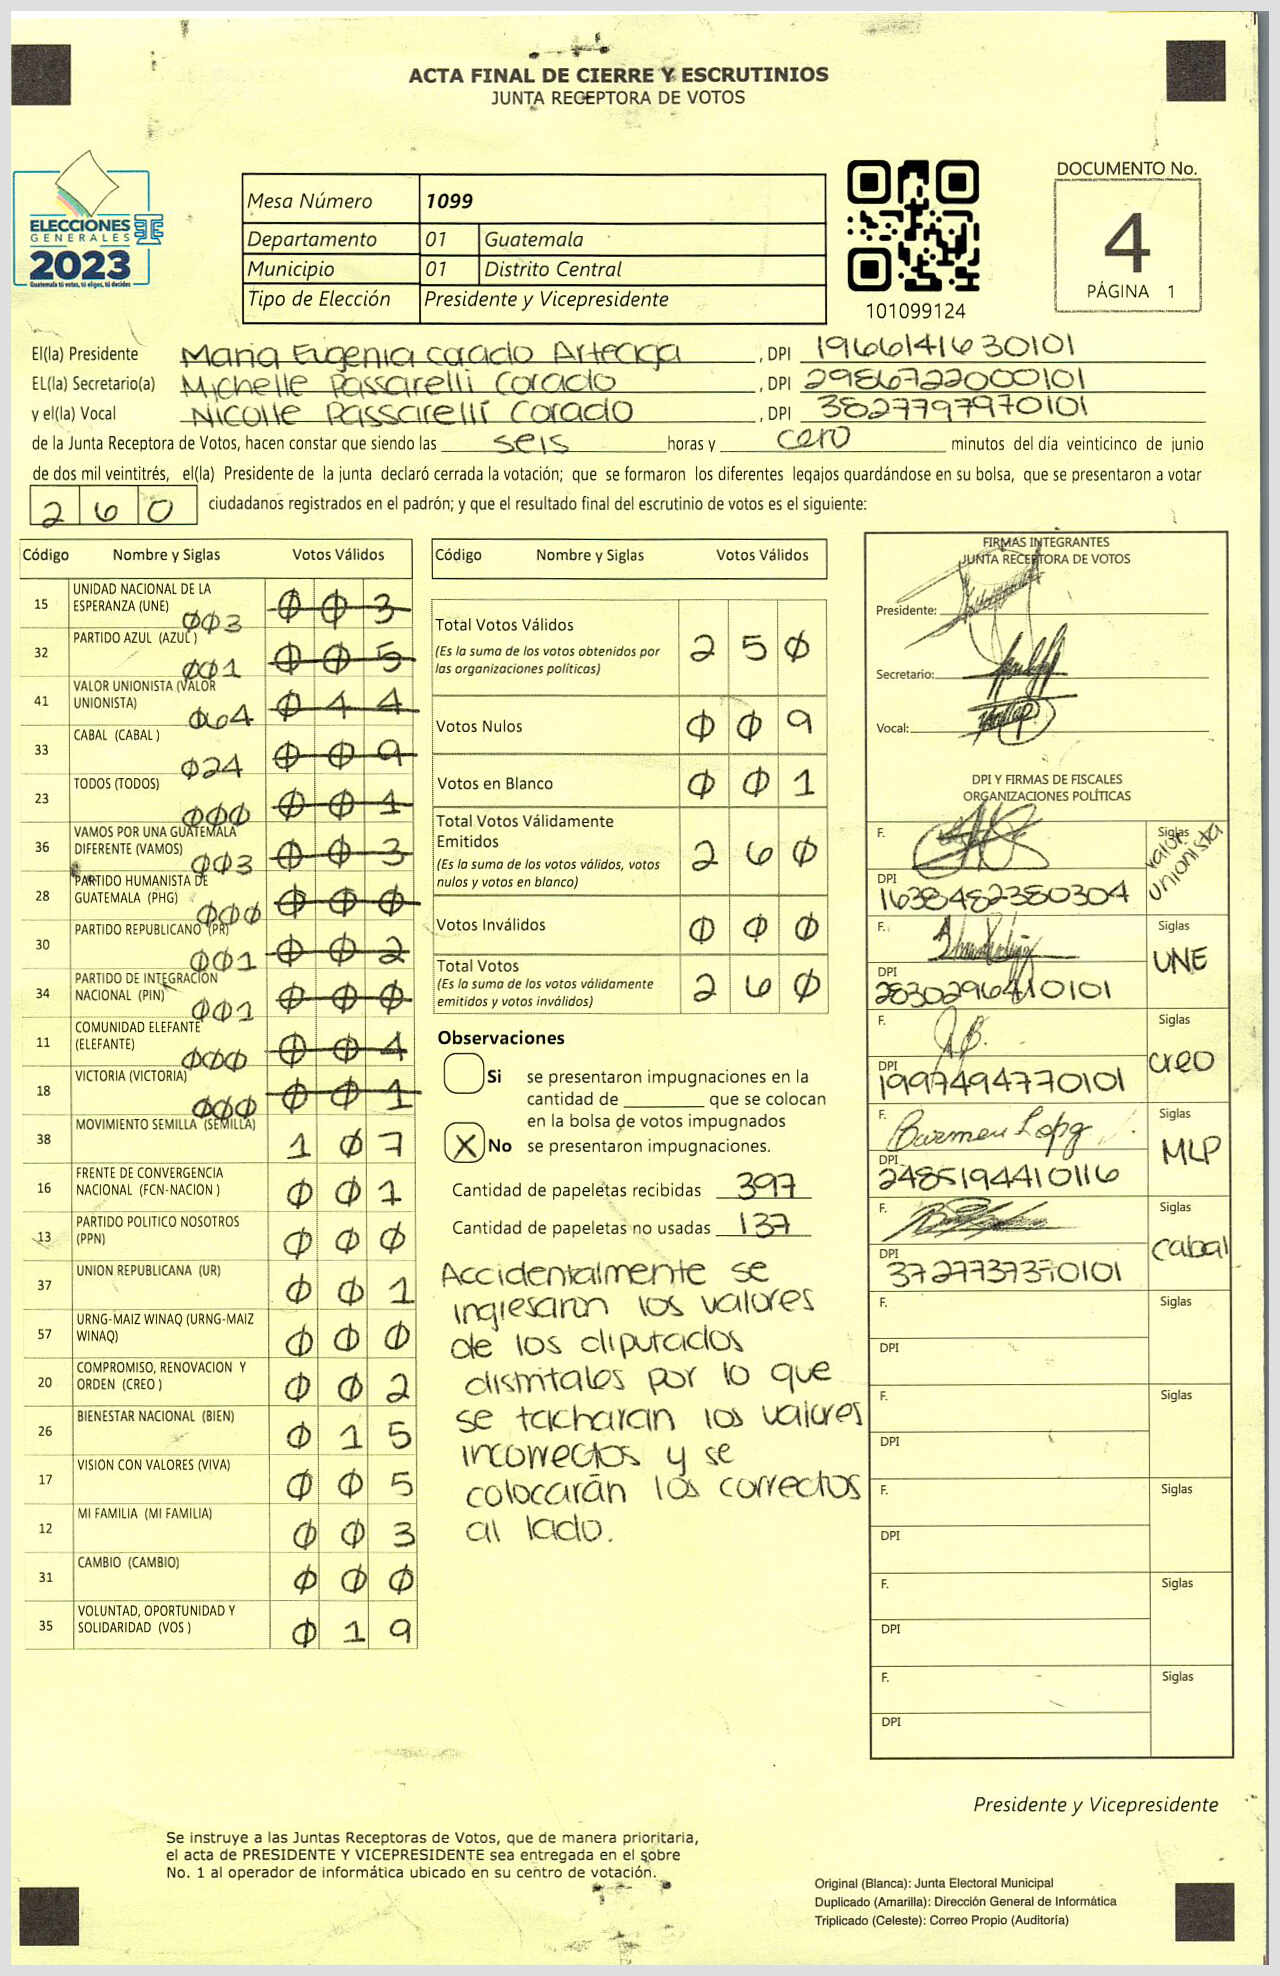 ACTA FINAL DE CIERRE Y ESCRUTINIOS
JUNTA RECEPTORA DE VOTOS
ELECCIONES
GENERALES
2023
Guatemala tú votas, tú eliges, tú decides
Mesa Número 1099
Departamento 01 Guatemala
Municipio 01 Distrito Central
Tipo de Elección Presidente y Vicepresidente
101099124
DOCUMENTO No.
4
PÁGINA 1
El(la) Presidente Maria Eugenia Corado Arteaga, DPI 1966141630101
EL(la) Secretario(a) Michelle Passarelli Corado, DPI 2986722000101
y el(la) Vocal Nicolle Passarelli Corado, DPI 3827797970101
de la Junta Receptora de Votos, hacen constar que siendo las seis horas y cero minutos del día veinticinco de junio
de dos mil veintitrés, el(la) Presidente de la junta declaró cerrada la votación; que se formaron los diferentes legajos guardándose en su bolsa, que se presentaron a votar
260 ciudadanos registrados en el padrón; y que el resultado final del escrutinio de votos es el siguiente:
Código Nombre y Siglas Votos Válidos
15 UNIDAD NACIONAL DE LA ESPERANZA (UNE) 003 003
32 PARTIDO AZUL (AZUL ) 001 005
41 VALOR UNIONISTA (VALOR UNIONISTA) 064 044
33 CABAL (CABAL ) 024 009
23 TODOS (TODOS) 000 001
36 VAMOS POR UNA GUATEMALA DIFERENTE (VAMOS) 003 003
28 PARTIDO HUMANISTA DE GUATEMALA (PHG) 000 000
30 PARTIDO REPUBLICANO (PR) 001 002
34 PARTIDO DE INTEGRACIÓN NACIONAL (PIN) 001 000
11 COMUNIDAD ELEFANTE (ELEFANTE) 000 004
18 VICTORIA (VICTORIA) 000 001
38 MOVIMIENTO SEMILLA (SEMILLA) 107
16 FRENTE DE CONVERGENCIA NACIONAL (FCN-NACION ) 001
13 PARTIDO POLITICO NOSOTROS (PPN) 000
37 UNION REPUBLICANA (UR) 001
57 URNG-MAIZ WINAQ (URNG-MAIZ WINAQ) 000
20 COMPROMISO, RENOVACION Y ORDEN (CREO ) 002
26 BIENESTAR NACIONAL (BIEN) 015
17 VISION CON VALORES (VIVA) 005
12 MI FAMILIA (MI FAMILIA) 003
31 CAMBIO (CAMBIO) 000
35 VOLUNTAD, OPORTUNIDAD Y SOLIDARIDAD (VOS ) 019
Código Nombre y Siglas Votos Válidos
Total Votos Válidos 250
(Es la suma de los votos obtenidos por
las organizaciones políticas)
Votos Nulos 009
Votos en Blanco 001
Total Votos Válidamente
Emitidos 260
(Es la suma de los votos válidos, votos
nulos y votos en blanco)
Votos Inválidos 000
Total Votos 260
(Es la suma de los votos válidamente
emitidos y votos inválidos)
Observaciones
Si se presentaron impugnaciones en la
cantidad de ________ que se colocan
en la bolsa de votos impugnados
X No se presentaron impugnaciones.
Cantidad de papeletas recibidas 397
Cantidad de papeletas no usadas 137
Accidentalmente se
ingresaron los valores
de los diputados
distritales por lo que
se tacharan los valores
incorrectos y se
colocarán los correctos
al lado.
FIRMAS INTEGRANTES
JUNTA RECEPTORA DE VOTOS
Presidente:
Secretario:
Vocal:
DPI Y FIRMAS DE FISCALES
ORGANIZACIONES POLÍTICAS
F. Siglas valor unionista
DPI 1638482380304
F. Siglas UNE
DPI 2830296410101
F. Siglas creo
DPI 1997494770101
F. Carmen Siglas MLP
DPI 2485194410116
F. Siglas cabal
DPI 3727737370101
F. Siglas
DPI
F. Siglas
DPI
F. Siglas
DPI
F. Siglas
DPI
F. Siglas
DPI
Presidente y Vicepresidente
Se instruye a las Juntas Receptoras de Votos, que de manera prioritaria,
el acta de PRESIDENTE Y VICEPRESIDENTE sea entregada en el sobre
No. 1 al operador de informática ubicado en su centro de votación.
Original (Blanca): Junta Electoral Municipal
Duplicado (Amarilla): Dirección General de Informática
Triplicado (Celeste): Correo Propio (Auditoría)